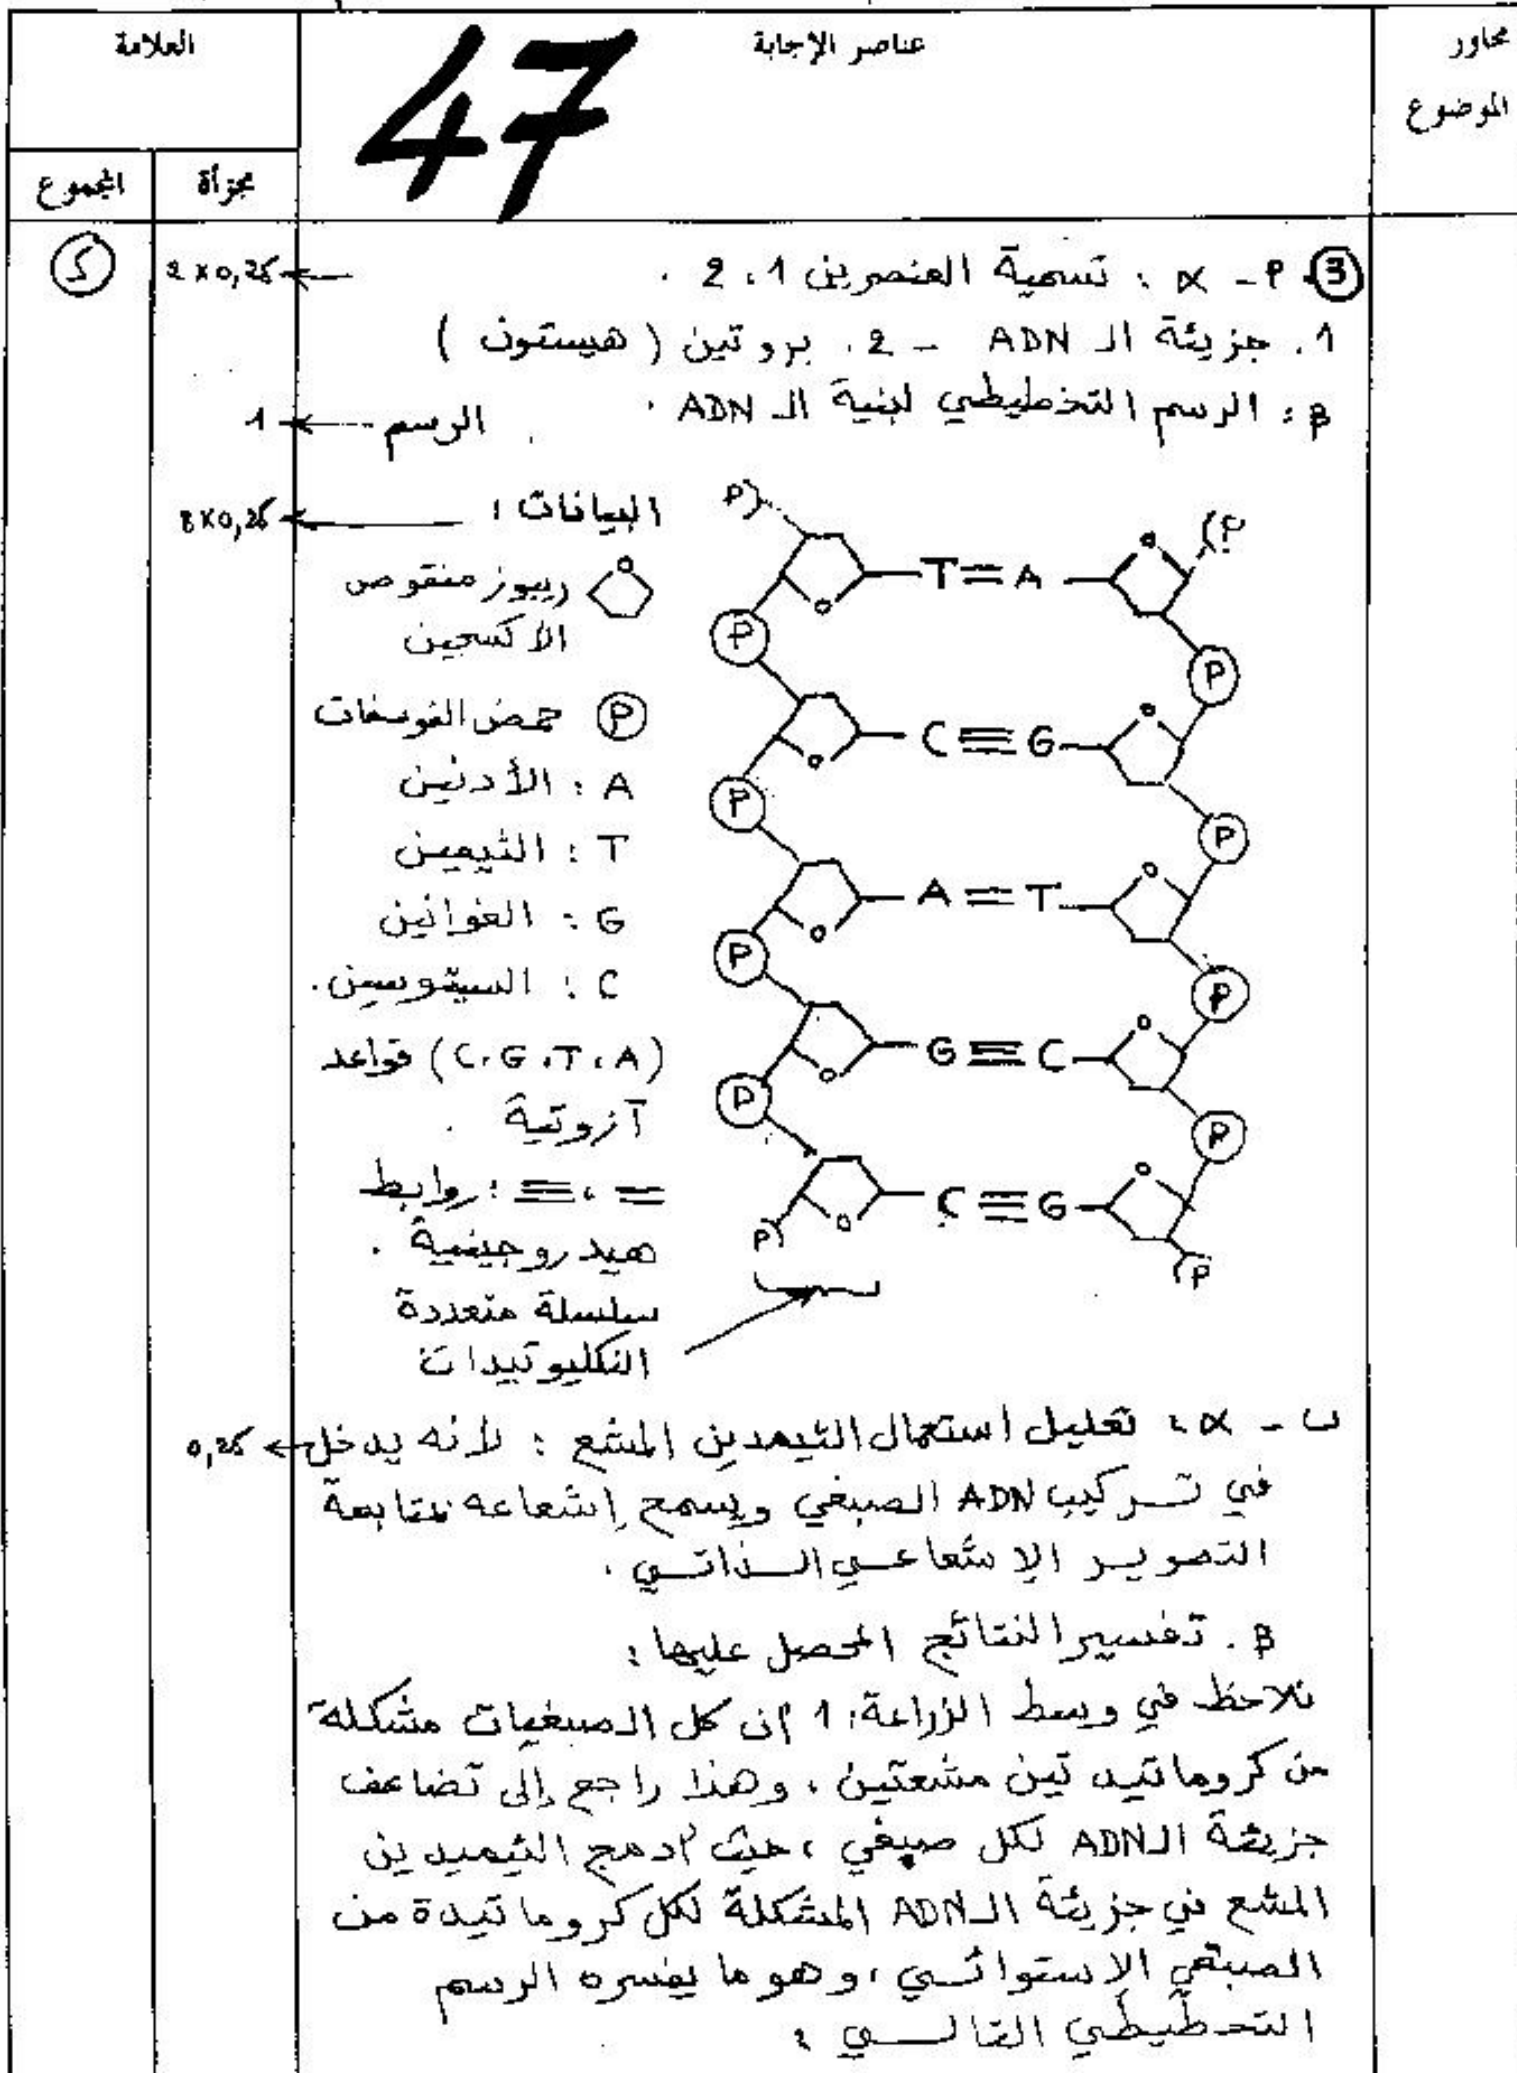 محاور
الموضوع
عناصر الإجابة
العلامة
مجزأة
المجموع
47
③. P - α : تسمية العنصرين 1، 2 .
2 × 0,25
5
1. جزيئة الـ ADN - 2. بروتين ( هيستون )
β : الرسم التخطيطي لبنية الـ ADN .
الرسم
1
البيانات :
8×0,25
ريبوز منقوص
الأكسجين
P حمض الفوسفات
A : الأدنين
T : التيمين
G : الغوانين
C : السيتوسين.
(C.G.T.A) قواعد
آزوتية .
= ، ≡ : روابط
هيدروجينية .
سلسلة متعددة
النكليوتيدات
P P
T = A
P P
C ≡ G
P P
A = T
P P
G ≡ C
P P
C ≡ G
P P
ب - α : تعليل استعمال التيمدين المشع : لأنه يدخل
0,25
في تركيب ADN الصبغي ويسمح إشعاعه بمتابعة
التصوير الإشعاعي الذاتي .
β . تفسير النتائج المحصل عليها :
نلاحظ في وسط الزراعة: 1 أن كل الصبغيات مشكلة
من كروماتيدتين مشعتين ، وهذا راجع إلى تضاعف
جزيئة الـ ADN لكل صبغي ، حيث أدمج التيميدين
المشع في جزيئة الـ ADN المشكلة لكل كروماتيدة من
الصبغي الإستوائي ، وهو ما يفسره الرسم
التخطيطي التالي :